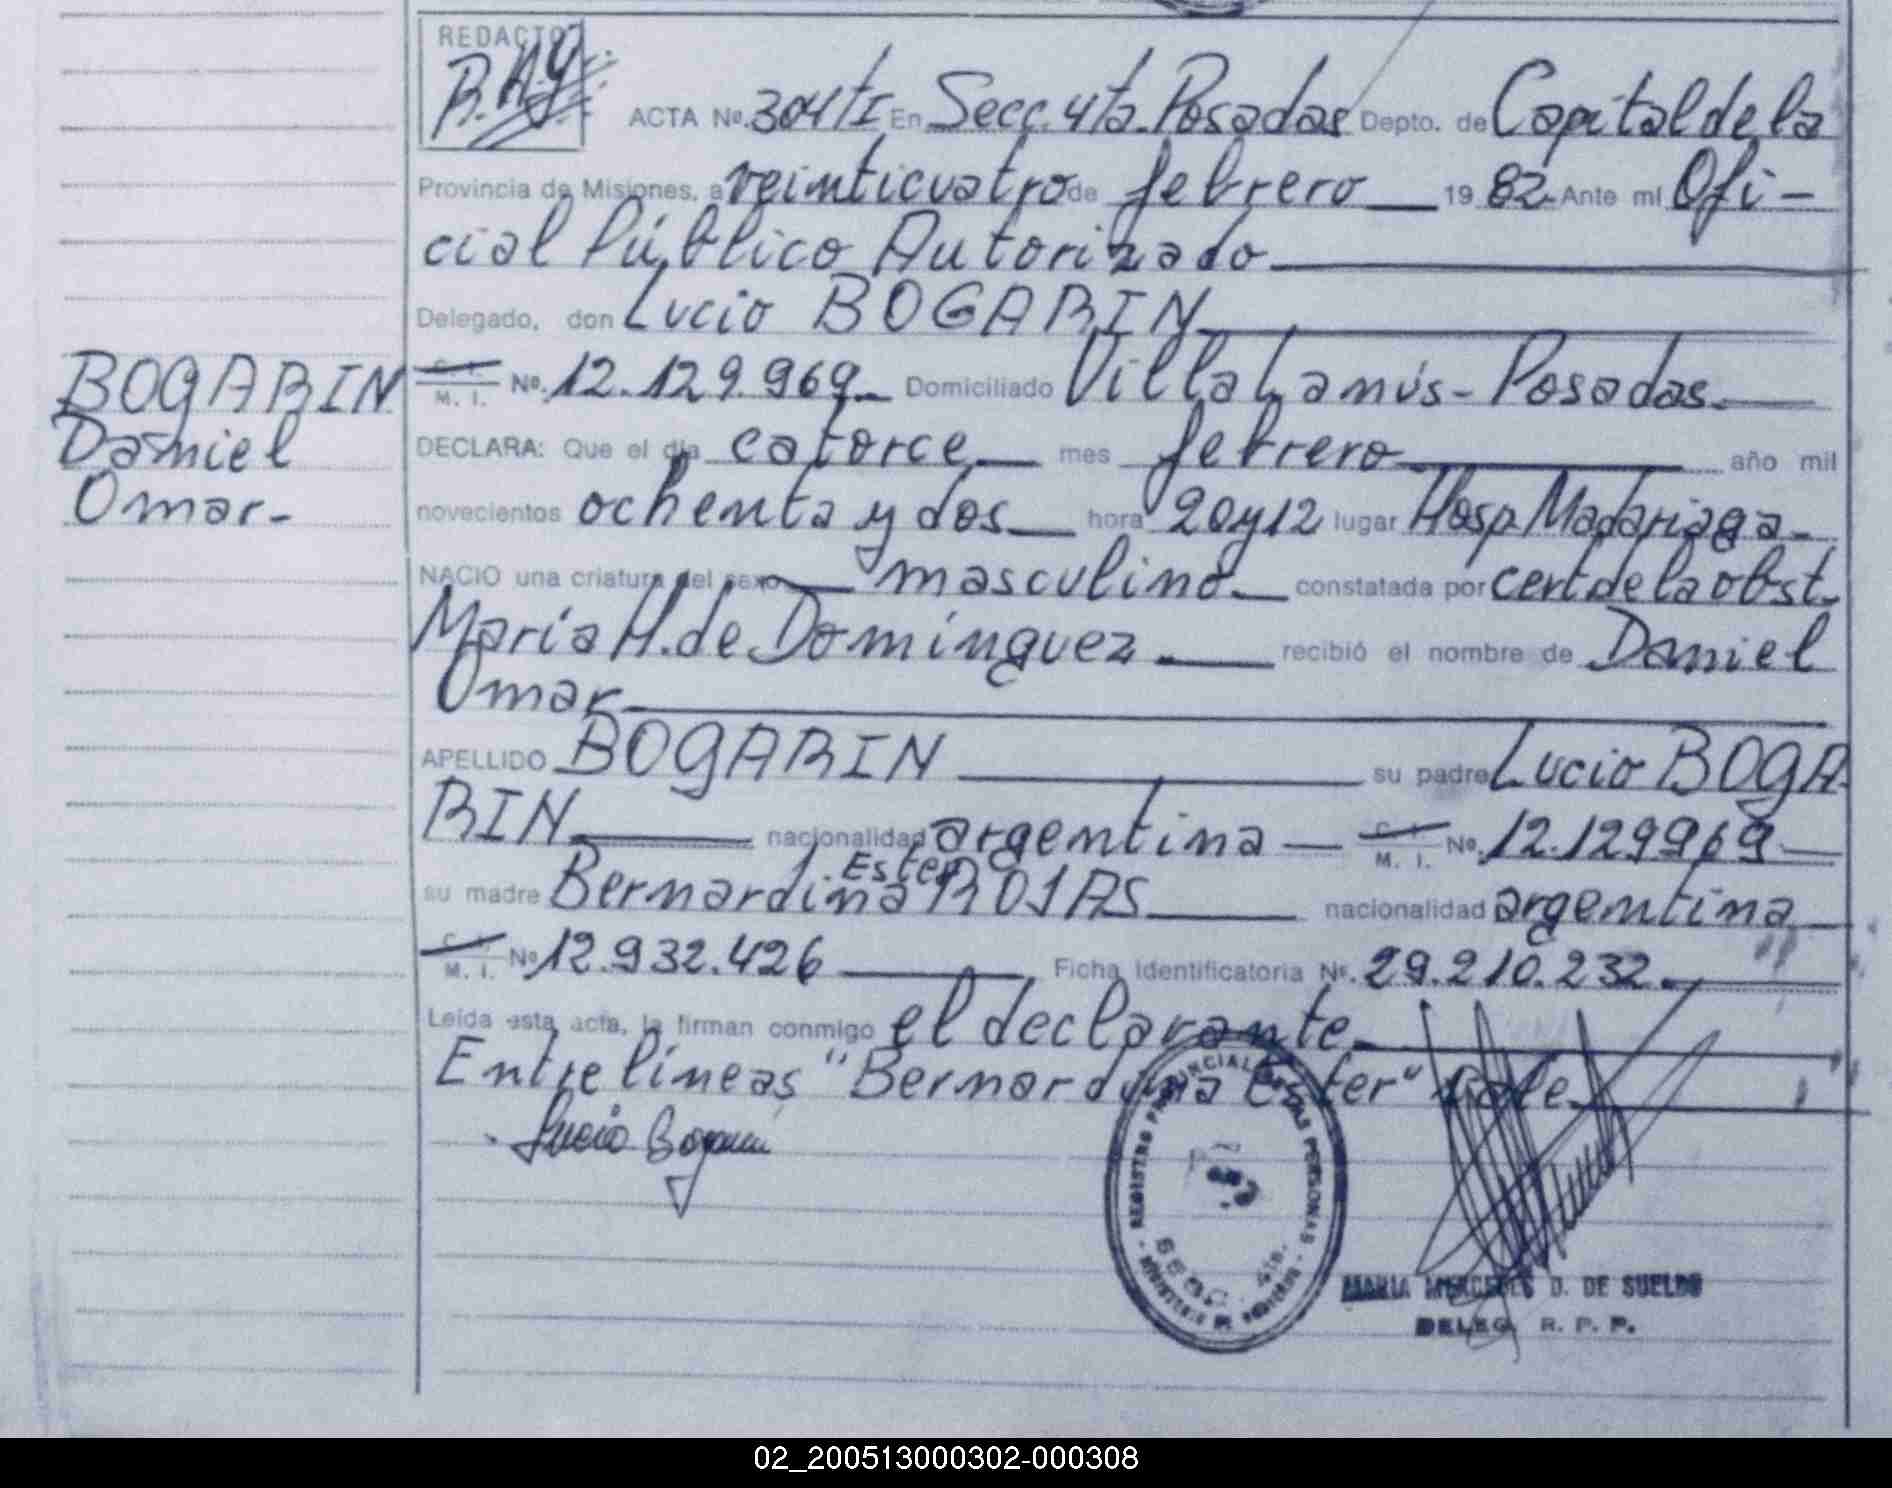 REDACTOR
B.A.G
ACTA No. 304/tI En Secc. 4ta. Posadas Depto. de Capital de la
Provincia de Misiones, a veinticuatro de febrero 19 82 Ante mí Ofi-
cial Público Autorizado
Delegado, don Lucio BOGARIN
C. I. M. I. No. 12.129.969 Domiciliado Villa Lanús - Posadas.
DECLARA: Que el día catorce mes febrero año mil
novecientos ochenta y dos hora 20 y 12 lugar Hosp. Madariaga
NACIO una criatura del sexo masculino constatada por cert. de la obst.
María H. de Domínguez recibió el nombre de Daniel
Omar
APELLIDO BOGARIN su padre Lucio BOGA
RIN nacionalidad argentina C. I. M. I. No. 12.129969
Ester
su madre Bernardina ROJAS nacionalidad argentina
C. I. M. I. No 12.932.426 Ficha Identificatoria No. 29.210.232
Leída esta acta, la firman conmigo el declarante
Entrelíneas "Bernardina Ester" Vale
Lucio Bogarin
BOGARIN
Daniel
Omar-
REGISTRO PROVINCIAL DE LAS PERSONAS
SECC. 4ta.
MARIA MERCEDES D. DE SUELDO
DELEG. R. P. P.
02_200513000302-000308